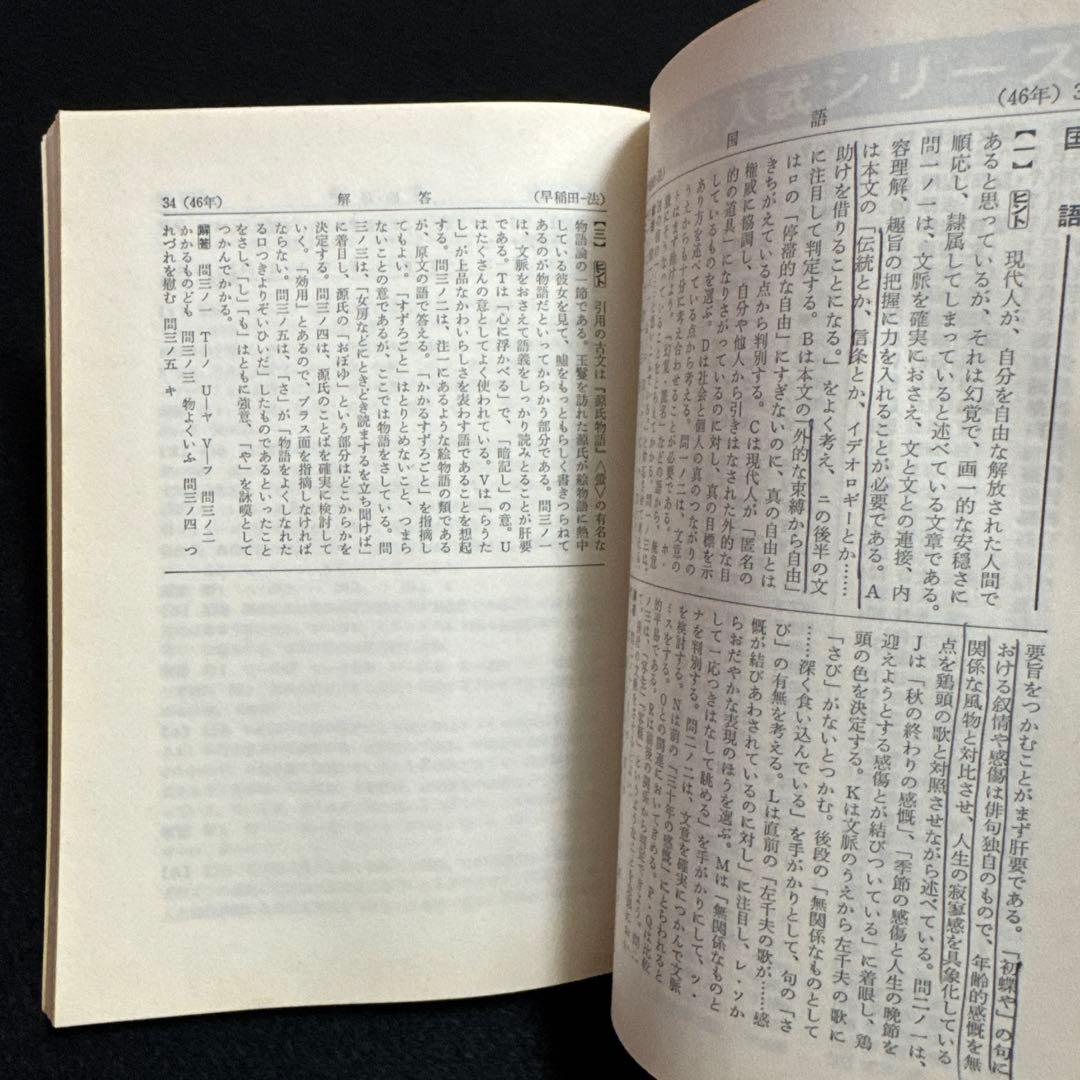 入試シリーズ
(46年) 3
国語
国語
【一】 ヒント 現代人が、自分を自由な解放された人間で
あると思っているが、それは幻覚で、画一的な安穏さに
順応し、隷属してしまっていると述べている文章である。
問一ノ一は、文脈を確実におさえ、文と文との連接、内
容理解、趣旨の把握に力を入れることが必要である。A
は本文の「伝統とか、信条とか、イデオロギーとか……
助けを借りることになる。」をよく考え、ニの後半の文
に注目して判定する。Bは本文の「外的な束縛から自由」
はロの「停滞的な自由」にすぎないのに、真の自由とは
きちがえている点から判別する。Cは現代人が「匿名の
権威に協調し、自分や他人から引きはなされた外的な目
的の道具」になりさがっているのに対し、真の目標を示
しているものを選ぶ。Dは社会と個人の真のつながりの
あり方を述べている点から考える。問一ノ二は、文意の
要旨をつかむことがまず肝要である。「初蝶や」の句に
おける叙情や感傷は俳句独自のもので、年齢的感慨を無
関係な風物と対比させ、人生の寂寥感を具象化している
点を鶏頭の歌と対照させながら述べている。問二ノ一は、
Jは「秋の終わりの感慨」、「季節の感傷と人生の晩節を
迎えようとする感傷とが結びついている」に着眼し、鶏
頭の色を決定する。Kは文脈のうえから左千夫の歌に
「さび」がないとつかむ。後段の「無関係なものとして
……深く食い込んでいる」を手がかりとして、句の「さ
び」の有無を考える。Lは直前の「左千夫の歌が……感
慨が結びあわされているのに対し」に注目し、レ・ソか
らおだやかな表現のほうを選ぶ。Mは「無関係なものと
して一応つきはなして眺める」を手がかりにして、ツ・
ナを判別する。問二ノ二は、文意を確実につかんで文脈
を検討する。Nは前の「三十年の感慨」にとらわれると
ミスをする。Oとの関連においてきめる。P・Qは比較
34 (46年)
解答
(早稲田-法)
【三】 ヒント 引用の古文は『源氏物語』〈螢〉の有名な
物語論の一節である。玉鬘を訪れた源氏が絵物語に熱中
している彼女を見て、嘘をもっともらしく書きつらねて
あるのが物語だといってからかう部分である。問三ノ一
は、文脈をおさえて語義をしっかり読みとることが肝要
である。Tは「心に浮かべる」で、「暗記し」の意。U
はたくさんの意としてよく使われている。Vは「らうた
し」が上品なかわいらしさを表わす語であることを想起
する。問三ノ二は、注一にあるような絵物語の類である
が、原文の語で答える。「かかるすずろごと」を指摘し
てもよい。「すずろごと」はとりとめないこと、つまら
ないことの意であるが、ここでは物語をさしている。問
三ノ三は、「女房などにときどき読まするを立ち聞けば」
に着目し、源氏の「おぼゆ」という部分はどこからかを
決定する。問三ノ四は、源氏のことばを確実に検討して
いく。「効用」とあるので、プラス面を指摘しなければ
ならない。問三ノ五は、「さ」が「物語をよくしなれた
る口つきよりぞいひいだ」したものであるといったこと
をさし、「し」「も」はともに強意、「や」を詠嘆として
つかんでかかる。
解答 問三ノ一 T―ノ U―ヤ V―フ 問三ノ二
かかるものども 問三ノ三 物よくいふ 問三ノ四 つ
れづれを慰む 問三ノ五 キ